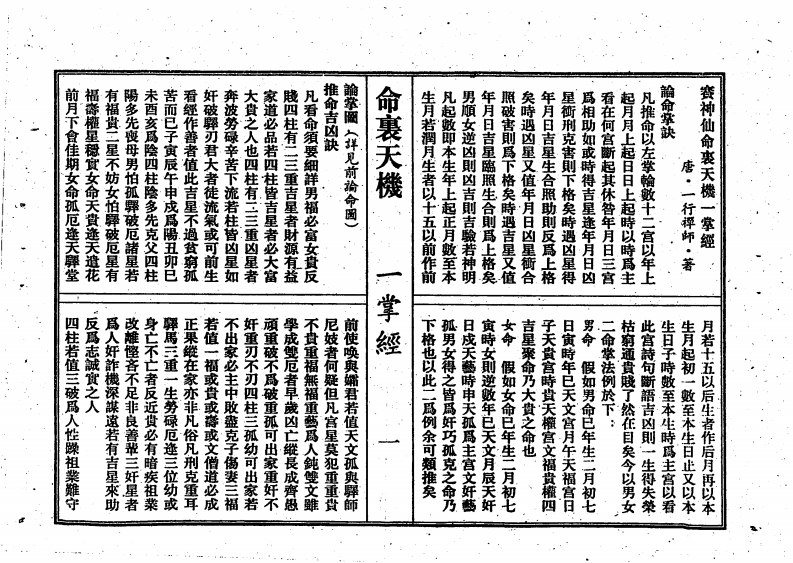 賽神仙命裏天機一掌經
唐·一行禪師·著
論命掌訣
凡推命以左掌輪數十二宮以年上
起月月上起日日上起時以時爲主
看在何宮斷起其休咎年月日三宮
爲相助如或時得吉星逢年月日凶
星衝刑克害則下格矣時遇凶星得
年月日吉星生合照助則反爲上格
矣時遇凶星又值年月日凶星衝合
照破害則爲下格矣時遇吉星又值
年月日吉星臨照生合則爲上格矣
男順女逆凶則凶吉則吉驗若神明
凡起數即本生年上起正月數至本
生月若潤月生者以十五以前作前
月若十五以后生者作后月再以本
生月起初一數至本生日止又以本
生日子時數至本生時爲主宮以看
此宮詩句斷語吉凶則一生得失榮
枯窮通貴賤了然在目矣今以男女
二命掌法例於下：
男命　假如男命巳年生二月初七
日寅時年巳天文宮月午天福宮日
子天貴宮時貴天權宮文福貴權四
吉星聚命乃大貴之命也
女命　假如女命巳年生二月初七
寅時女則逆數年巳天文月辰天奸
日戌天藝時申天孤爲主宮文奸藝
孤男女得之皆爲奸巧孤克之命乃
下格也以此二爲例余可類推矣
命裏天機
一掌經
一
論掌圖（詳見前論命圖）
推命吉凶訣
凡看命須要細詳男福必富女貴反
賤四柱有二三重吉星者財源有益
家道必品若四柱皆吉星者必大富
大貴之人也四柱有二三重凶星者
奔波勞碌辛苦下流若柱皆凶星如
奸破驛刃君大者徒流氣或可前生
看經作善者值此吉星不過貧窮孤
苦而已子寅辰午申戌爲陽丑卯巳
未酉亥爲陰四柱陰多先克父四柱
陽多先喪母男怕孤驛破厄諸星若
有福貴二星不妨女怕驛破厄星有
福壽權星穩實女命天貴逢天遣花
前月下會佳期女命孤厄逢天驛堂
前使喚與孀君若值天文孤與驛師
尼妓者何疑但凡宮星莫犯重重貴
不貴重福無福重藝爲人鈍雙文雖
學成雙厄者早歲凶亡縱長成齊愚
頑重破不爲破重孤可出家重奸不
奸重刃不刃四柱三孤幼可出家若
不出家必主中敗盡克子傷妻三福
若值一福或貴或壽或文僧道必成
正果縱在家亦非凡俗凡刑克重耳
驛馬三重一生勞碌厄逢三位幼或
身亡不亡者反近貴必有暗疾祖業
改離慳吝不足非良善輩三奸星者
爲人奸詐機深謀遠若有吉星來助
反爲志誠實之人
四柱若值三破爲人性躁祖業難守